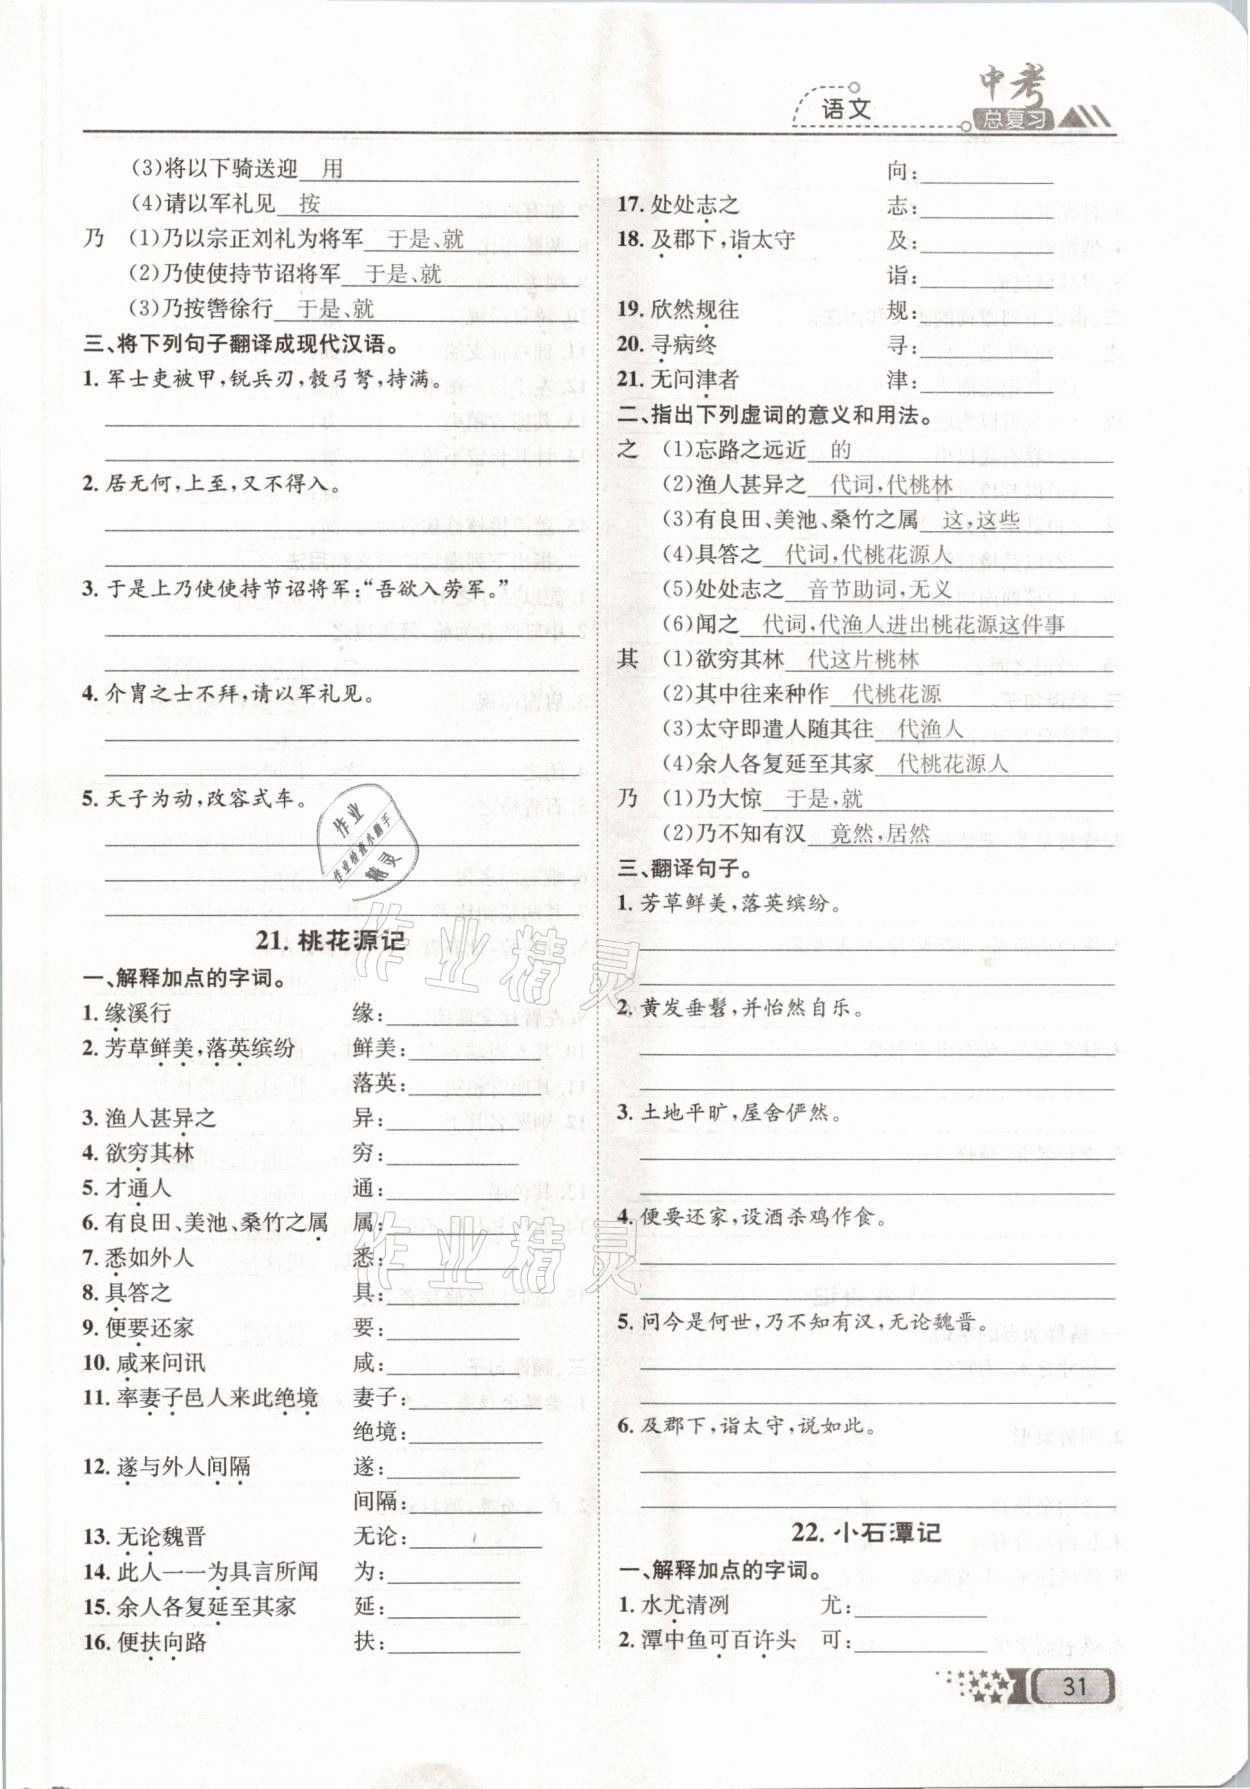 语文
中考
总复习
(3)将以下骑送迎 用
(4)请以军礼见 按
乃 (1)乃以宗正刘礼为将军 于是、就
(2)乃使使持节诏将军 于是、就
(3)乃按辔徐行 于是、就
三、将下列句子翻译成现代汉语。
1. 军士吏被甲,锐兵刃,彀弓弩,持满。
2. 居无何,上至,又不得入。
3. 于是上乃使使持节诏将军:“吾欲入劳军。”
4. 介胄之士不拜,请以军礼见。
5. 天子为动,改容式车。
21. 桃花源记
一、解释加点的字词。
1. 缘溪行 缘:
2. 芳草鲜美,落英缤纷 鲜美:
落英:
3. 渔人甚异之 异:
4. 欲穷其林 穷:
5. 才通人 通:
6. 有良田、美池、桑竹之属 属:
7. 悉如外人 悉:
8. 具答之 具:
9. 便要还家 要:
10. 咸来问讯 咸:
11. 率妻子邑人来此绝境 妻子:
绝境:
12. 遂与外人间隔 遂:
间隔:
13. 无论魏晋 无论:
14. 此人一一为具言所闻 为:
15. 余人各复延至其家 延:
16. 便扶向路 扶:
向:
17. 处处志之 志:
18. 及郡下,诣太守 及:
诣:
19. 欣然规往 规:
20. 寻病终 寻:
21. 无问津者 津:
二、指出下列虚词的意义和用法。
之 (1)忘路之远近 的
(2)渔人甚异之 代词,代桃林
(3)有良田、美池、桑竹之属 这,这些
(4)具答之 代词,代桃花源人
(5)处处志之 音节助词,无义
(6)闻之 代词,代渔人进出桃花源这件事
其 (1)欲穷其林 代这片桃林
(2)其中往来种作 代桃花源
(3)太守即遣人随其往 代渔人
(4)余人各复延至其家 代桃花源人
乃 (1)乃大惊 于是,就
(2)乃不知有汉 竟然,居然
三、翻译句子。
1. 芳草鲜美,落英缤纷。
2. 黄发垂髫,并怡然自乐。
3. 土地平旷,屋舍俨然。
4. 便要还家,设酒杀鸡作食。
5. 问今是何世,乃不知有汉,无论魏晋。
6. 及郡下,诣太守,说如此。
22. 小石潭记
一、解释加点的字词。
1. 水尤清冽 尤:
2. 潭中鱼可百许头 可:
31
作业
作业检查小助手
精灵
作业精灵
作业精灵